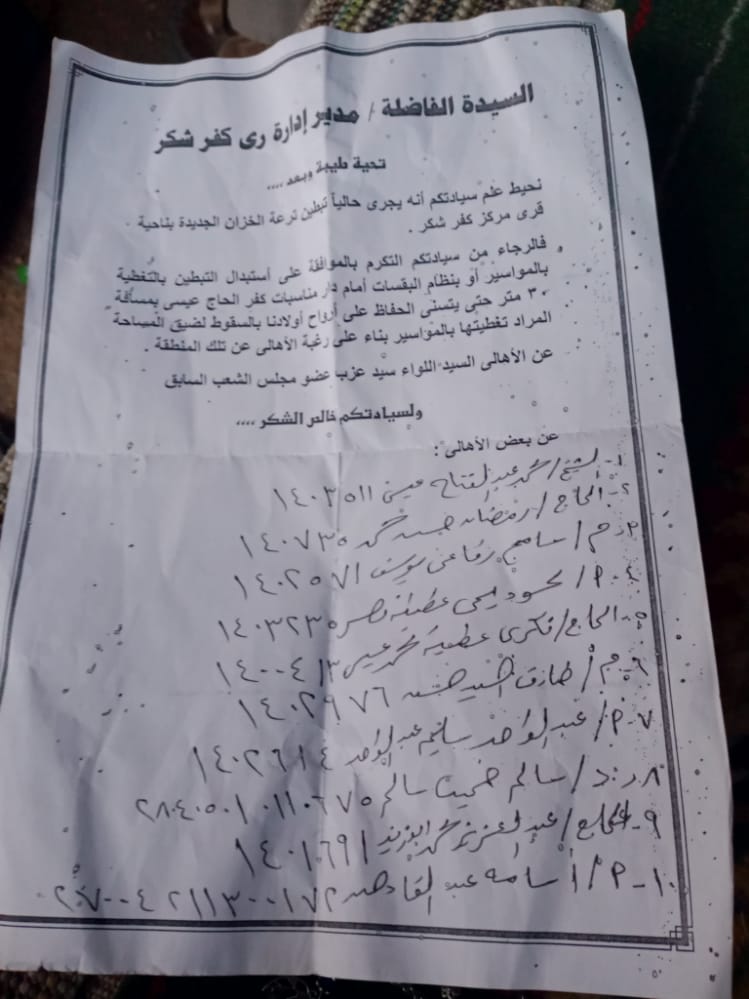 السيدة الفاضلة / مدير إدارة رى كفر شكر
تحية طيبة وبعد ،،،،
نحيط علم سيادتكم أنه يجرى حالياً تبطين ترعة الخزان الجديدة بناحية
قرى مركز كفر شكر .
فالرجاء من سيادتكم التكرم بالموافقة على أستبدال التبطين بالتغطية
بالمواسير أو بنظام البقسات أمام دار مناسبات كفر الحاج عيسى بمسافة
٣٠ متر حتى يتسنى الحفاظ على أرواح أولادنا بالسقوط لضيق المساحة
المراد تغطيتها بالمواسير بناء على رغبة الأهالى عن تلك المنطقة .
عن الأهالى السيد اللواء سيد عزب عضو مجلس الشعب السابق
ولسيادتكم خالص الشكر ،،،،
عن بعض الأهالى :
١- الشيخ / محمد عبد الفتاح عيسى ١٤٠٣٥١١
٢- الحاج / رمضان حسن محمد ١٤٠٧٣٥
٣- م / سامح رفاعى يوسف ١٤٠٢٥٧١
٤- م / محمود يحى عطية نصر ١٤٠٣٢٣٥
٥- الحاج / فكرى عطية محمد عيسى ١٤٠٠٤١٣
٦- م / طارق السيد حسن ١٤٠٢٩٧٦
٧- م / عبد الواحد سليم عبد الواحد ١٤٠٢٦١٤
٨- د / سالم خميس سالم ٢٨٤٠٥٠١٠١١٠٦٧٥
٩- الحاج / عبد العزيز محمد ابوزيد ١٤٠١٦٩١
١٠- م / أسامه عبد القادر ٢٠٧٠٠٤٢١١٣٠٠١٧٢